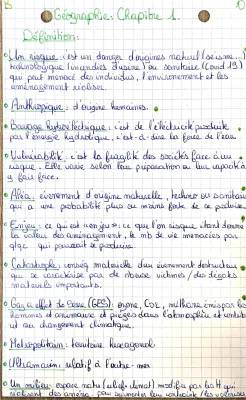 Géographie : Chapitre 1.
Définition :
• Un risque : c'est un danger d'origines naturel (seisme...
technologique (incendies d'usine) ou sanitaire (Covid 19)
qui peut menacé des individus, l'environnement et les
aménagement réaliser.
• Anthropique : d'origine humaines.
• Barrage hydroélectrique : c'est de l'électricité produite
par l'énergie hydrolique, c'est-à-dire la force de l'eau
• Vulnérabilité : c'est la fragilité des sociétés face à un
risque. Elle varie selon leur préparation ou leur capacité à
y faire face.
• Aléa : évenement d'origine naturelle, techno ou sanitaire
qui a une probabilité plus ou moins forte de se produire.
• Enjeu : ce qui est "en jeu" : ce que l'on risque étant donné
des aménagement, le nb de vie menacées par
qlqc qui pourrait se produire.
• Catastrophe : conséq materielle d'un évenement destructeur
qui se caractérise par de nbreuse victimes / des dégats
materiels importants.
• Gaz à effet de Serre (GES) : ozone, CO2, méthane émis par les
hommes et
au changement climatique.
• Métropolitain : territoire hexagonal
• Ultramarin : relatif à l'outre-mer
• Un milieu : espace natu modifié par les H qui
réalisent des aména. pour